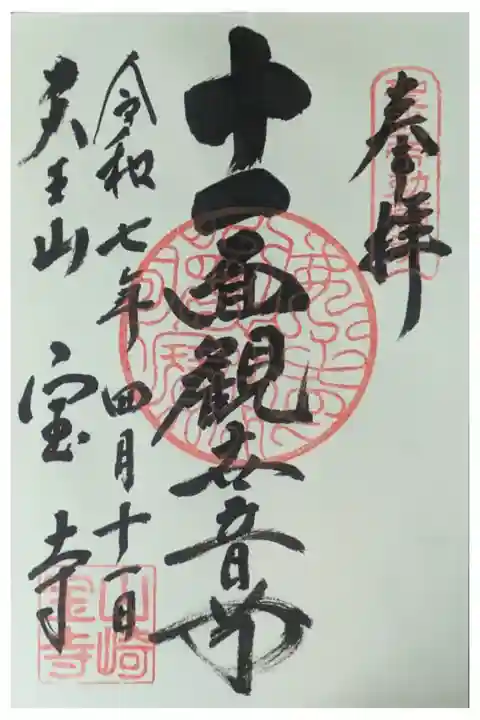 奉拝
十一面観世音
令和七年四月十一日
天王山 宝寺
山崎
宝寺